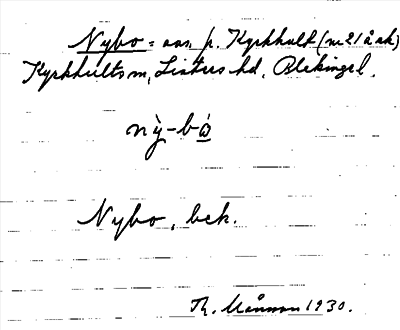 Nybo = aas. p. Kyrkhult (m 21 åak)
Kyrkhults sn, Listers hd, Blekinge l.
nỳ-bó
Nybo, bek.
Th. Månsson 1930.